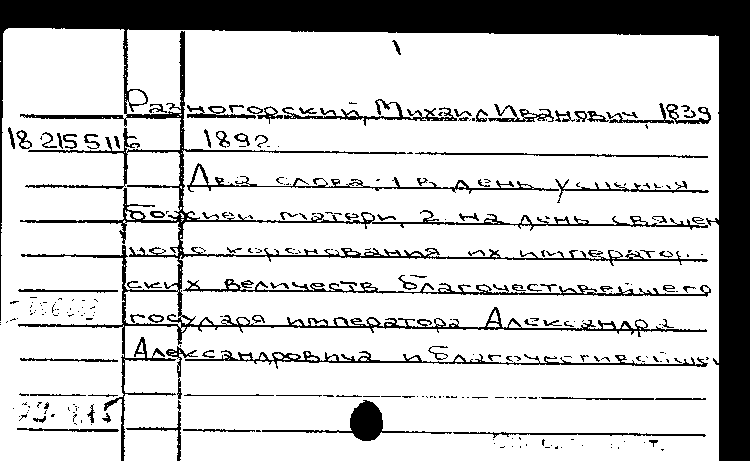 Разногорский, Михаил Иванович, 1839
18.2155116 1892
Два слова: 1 в день успения
божией матери, 2 на день священ
ного коронования их император-
ских величеств благочестивейшего
государя императора Александра
Александровича и благочестивейшей